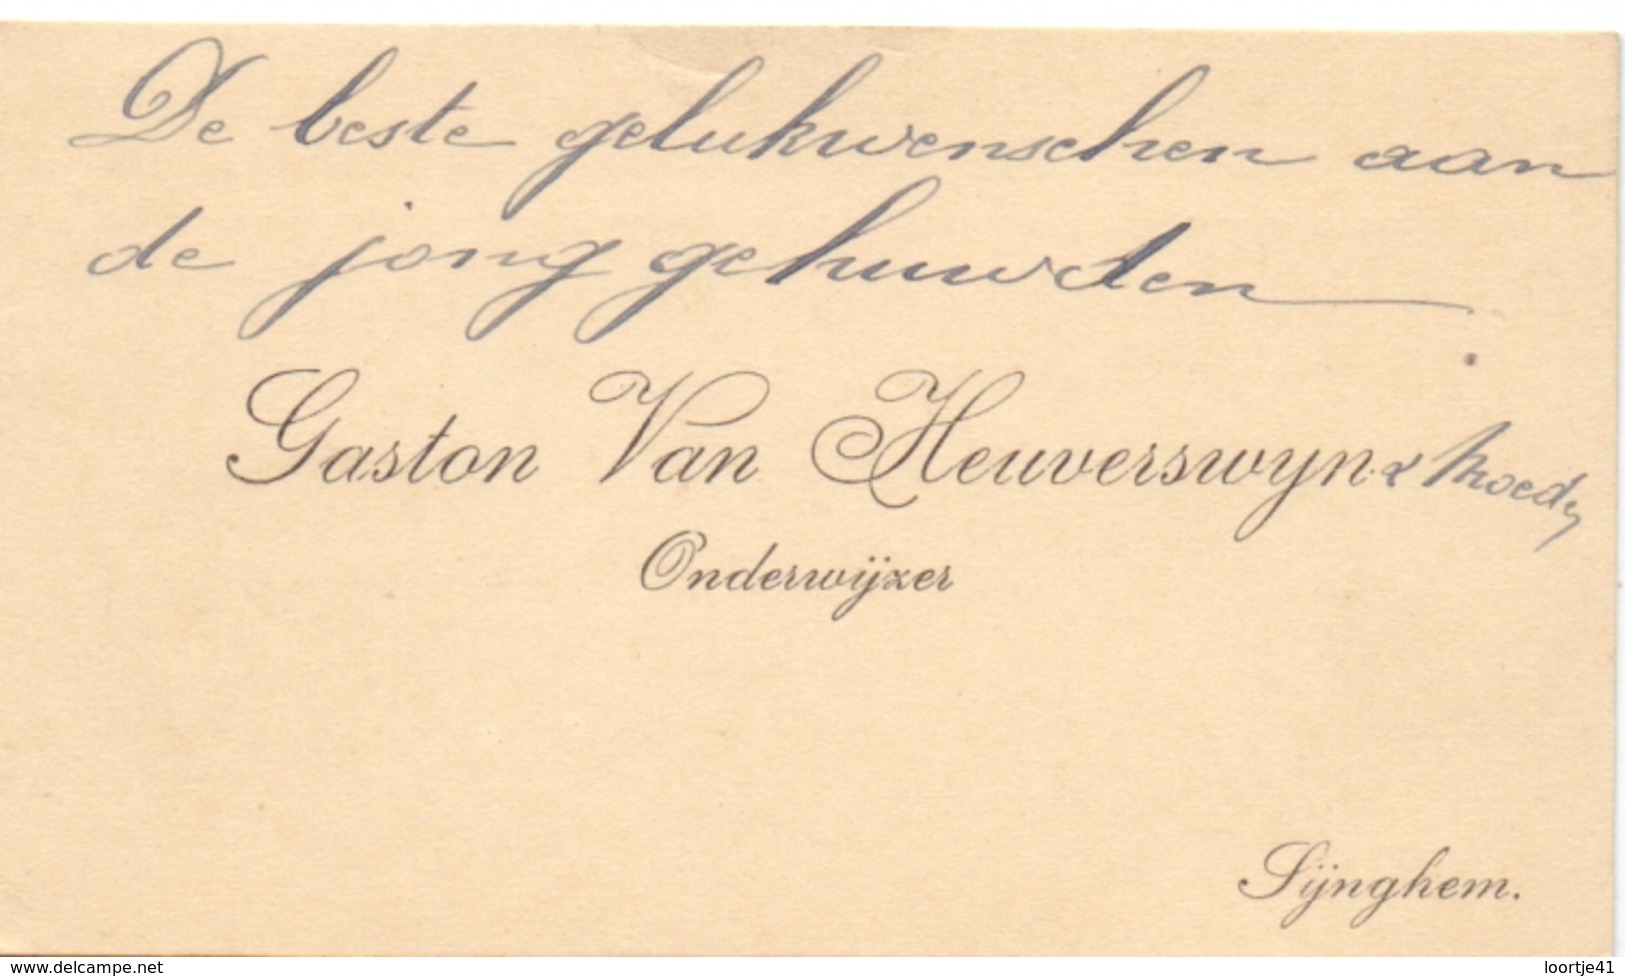 De beste gelukwenschen aan
de jong gehuwden.
Gaston Van Heuverswyn & Moeder
Onderwijzer
Sijnghem.
www.delcampe.net
loortje41